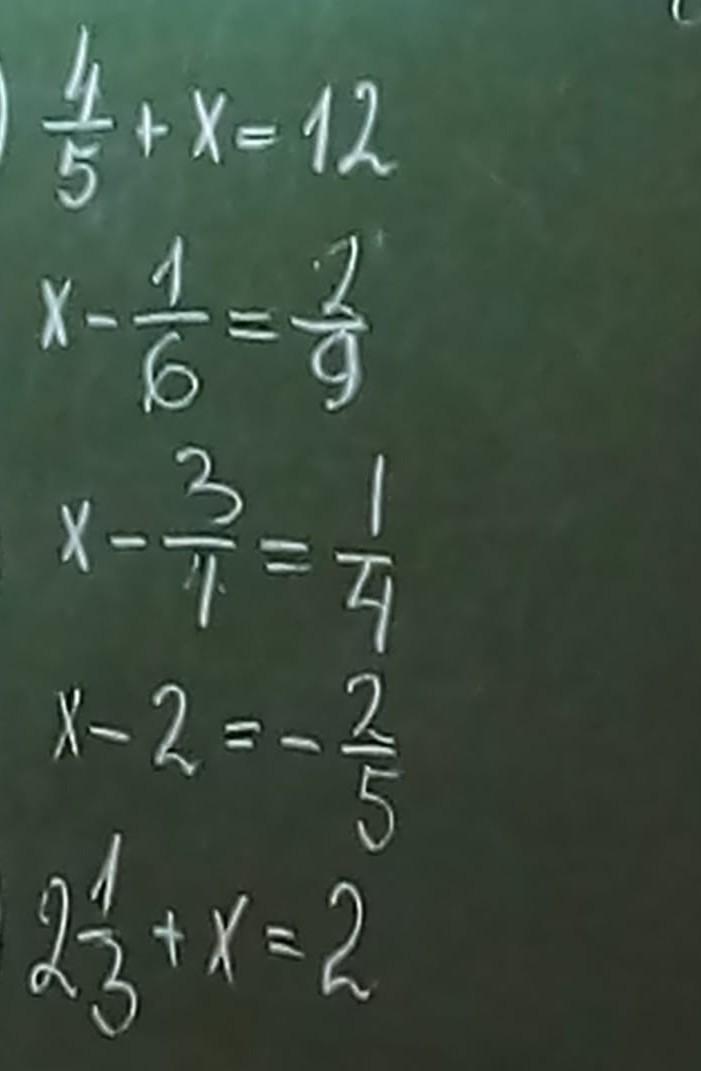 ) 4/5 + x = 12
x - 1/6 = 2/9
x - 3/1 = 1/4
x - 2 = - 2/5
2 1/3 + x = 2